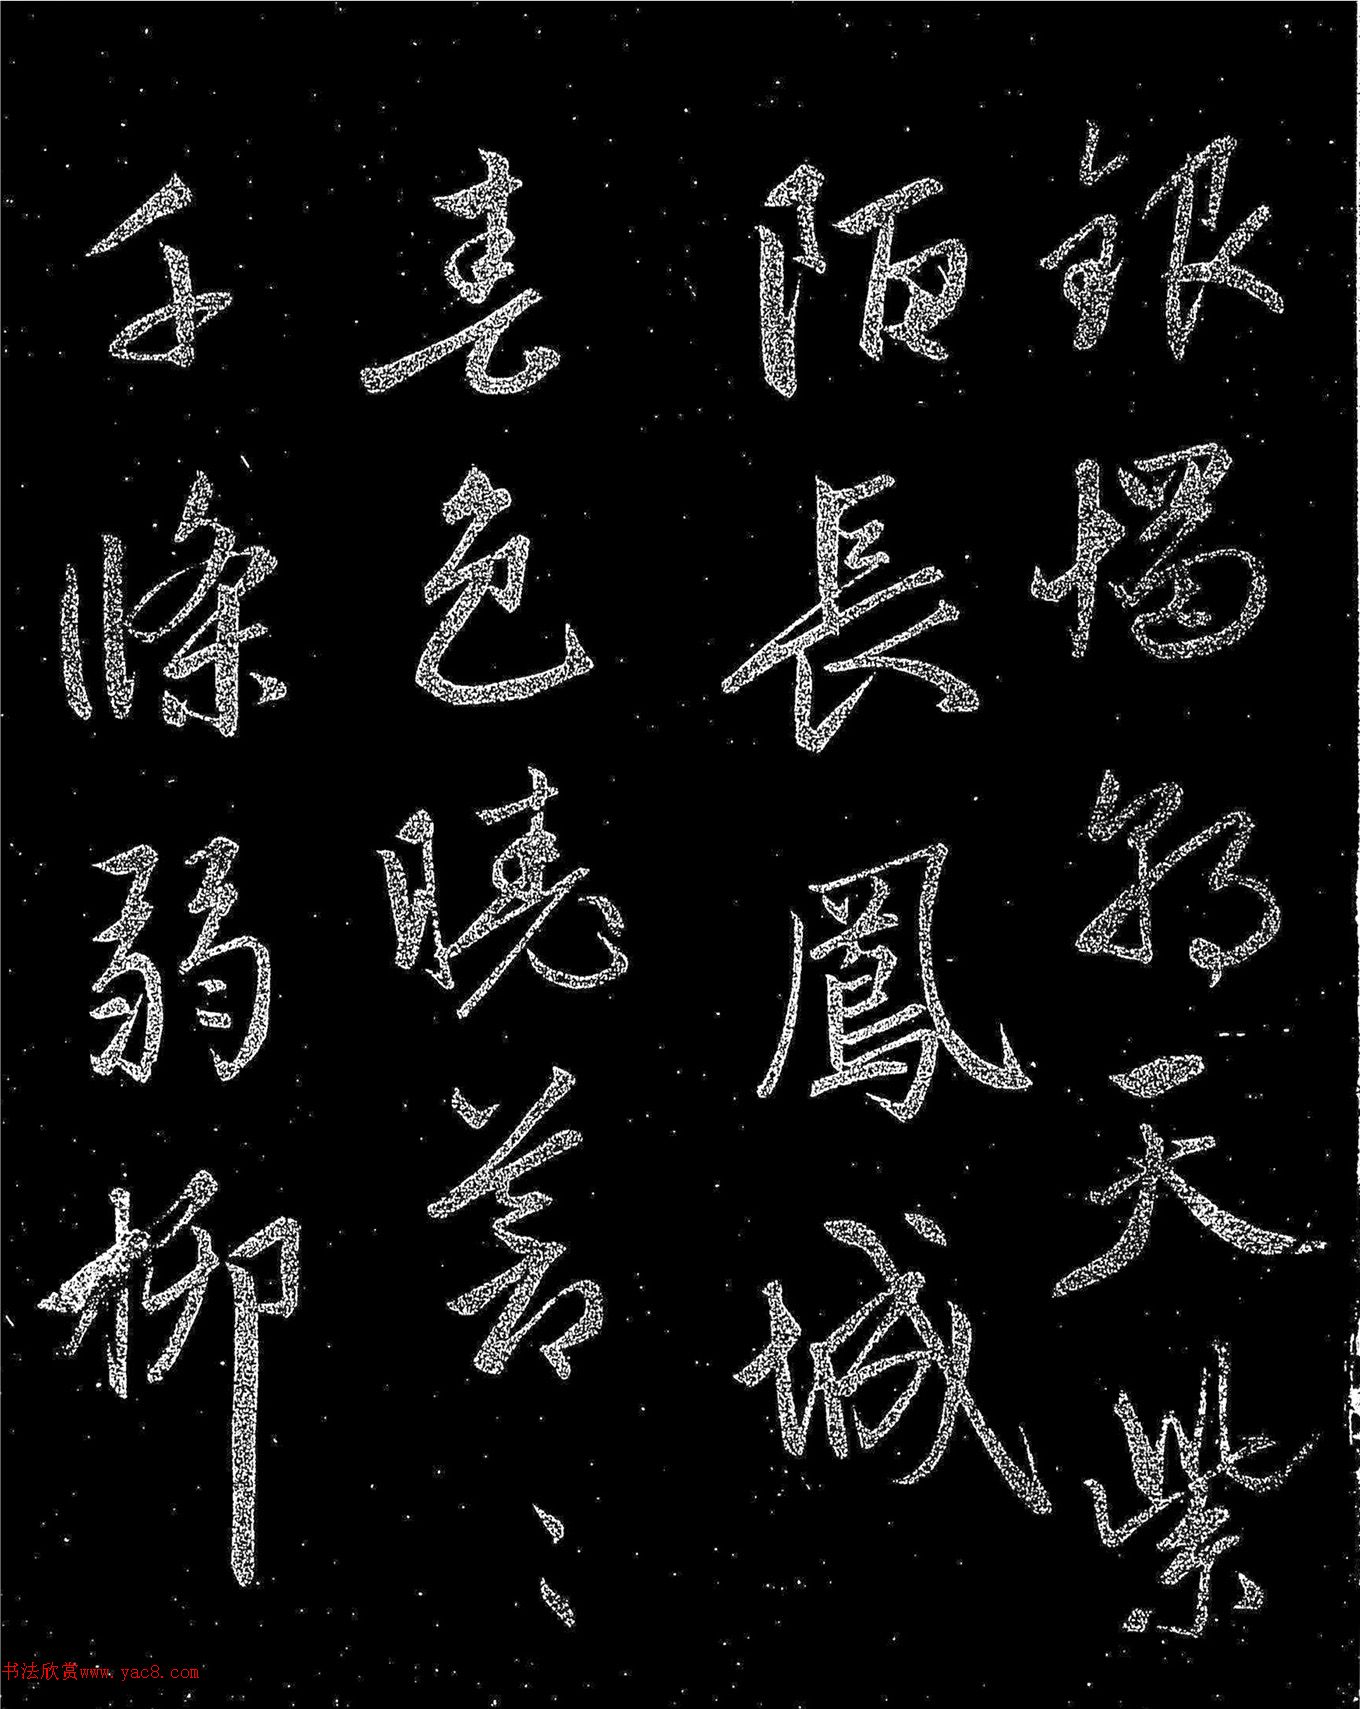 銀燭朝天紫
陌長鳳城
春色曉蒼〻
千條弱柳
书法欣赏www.yac8.com